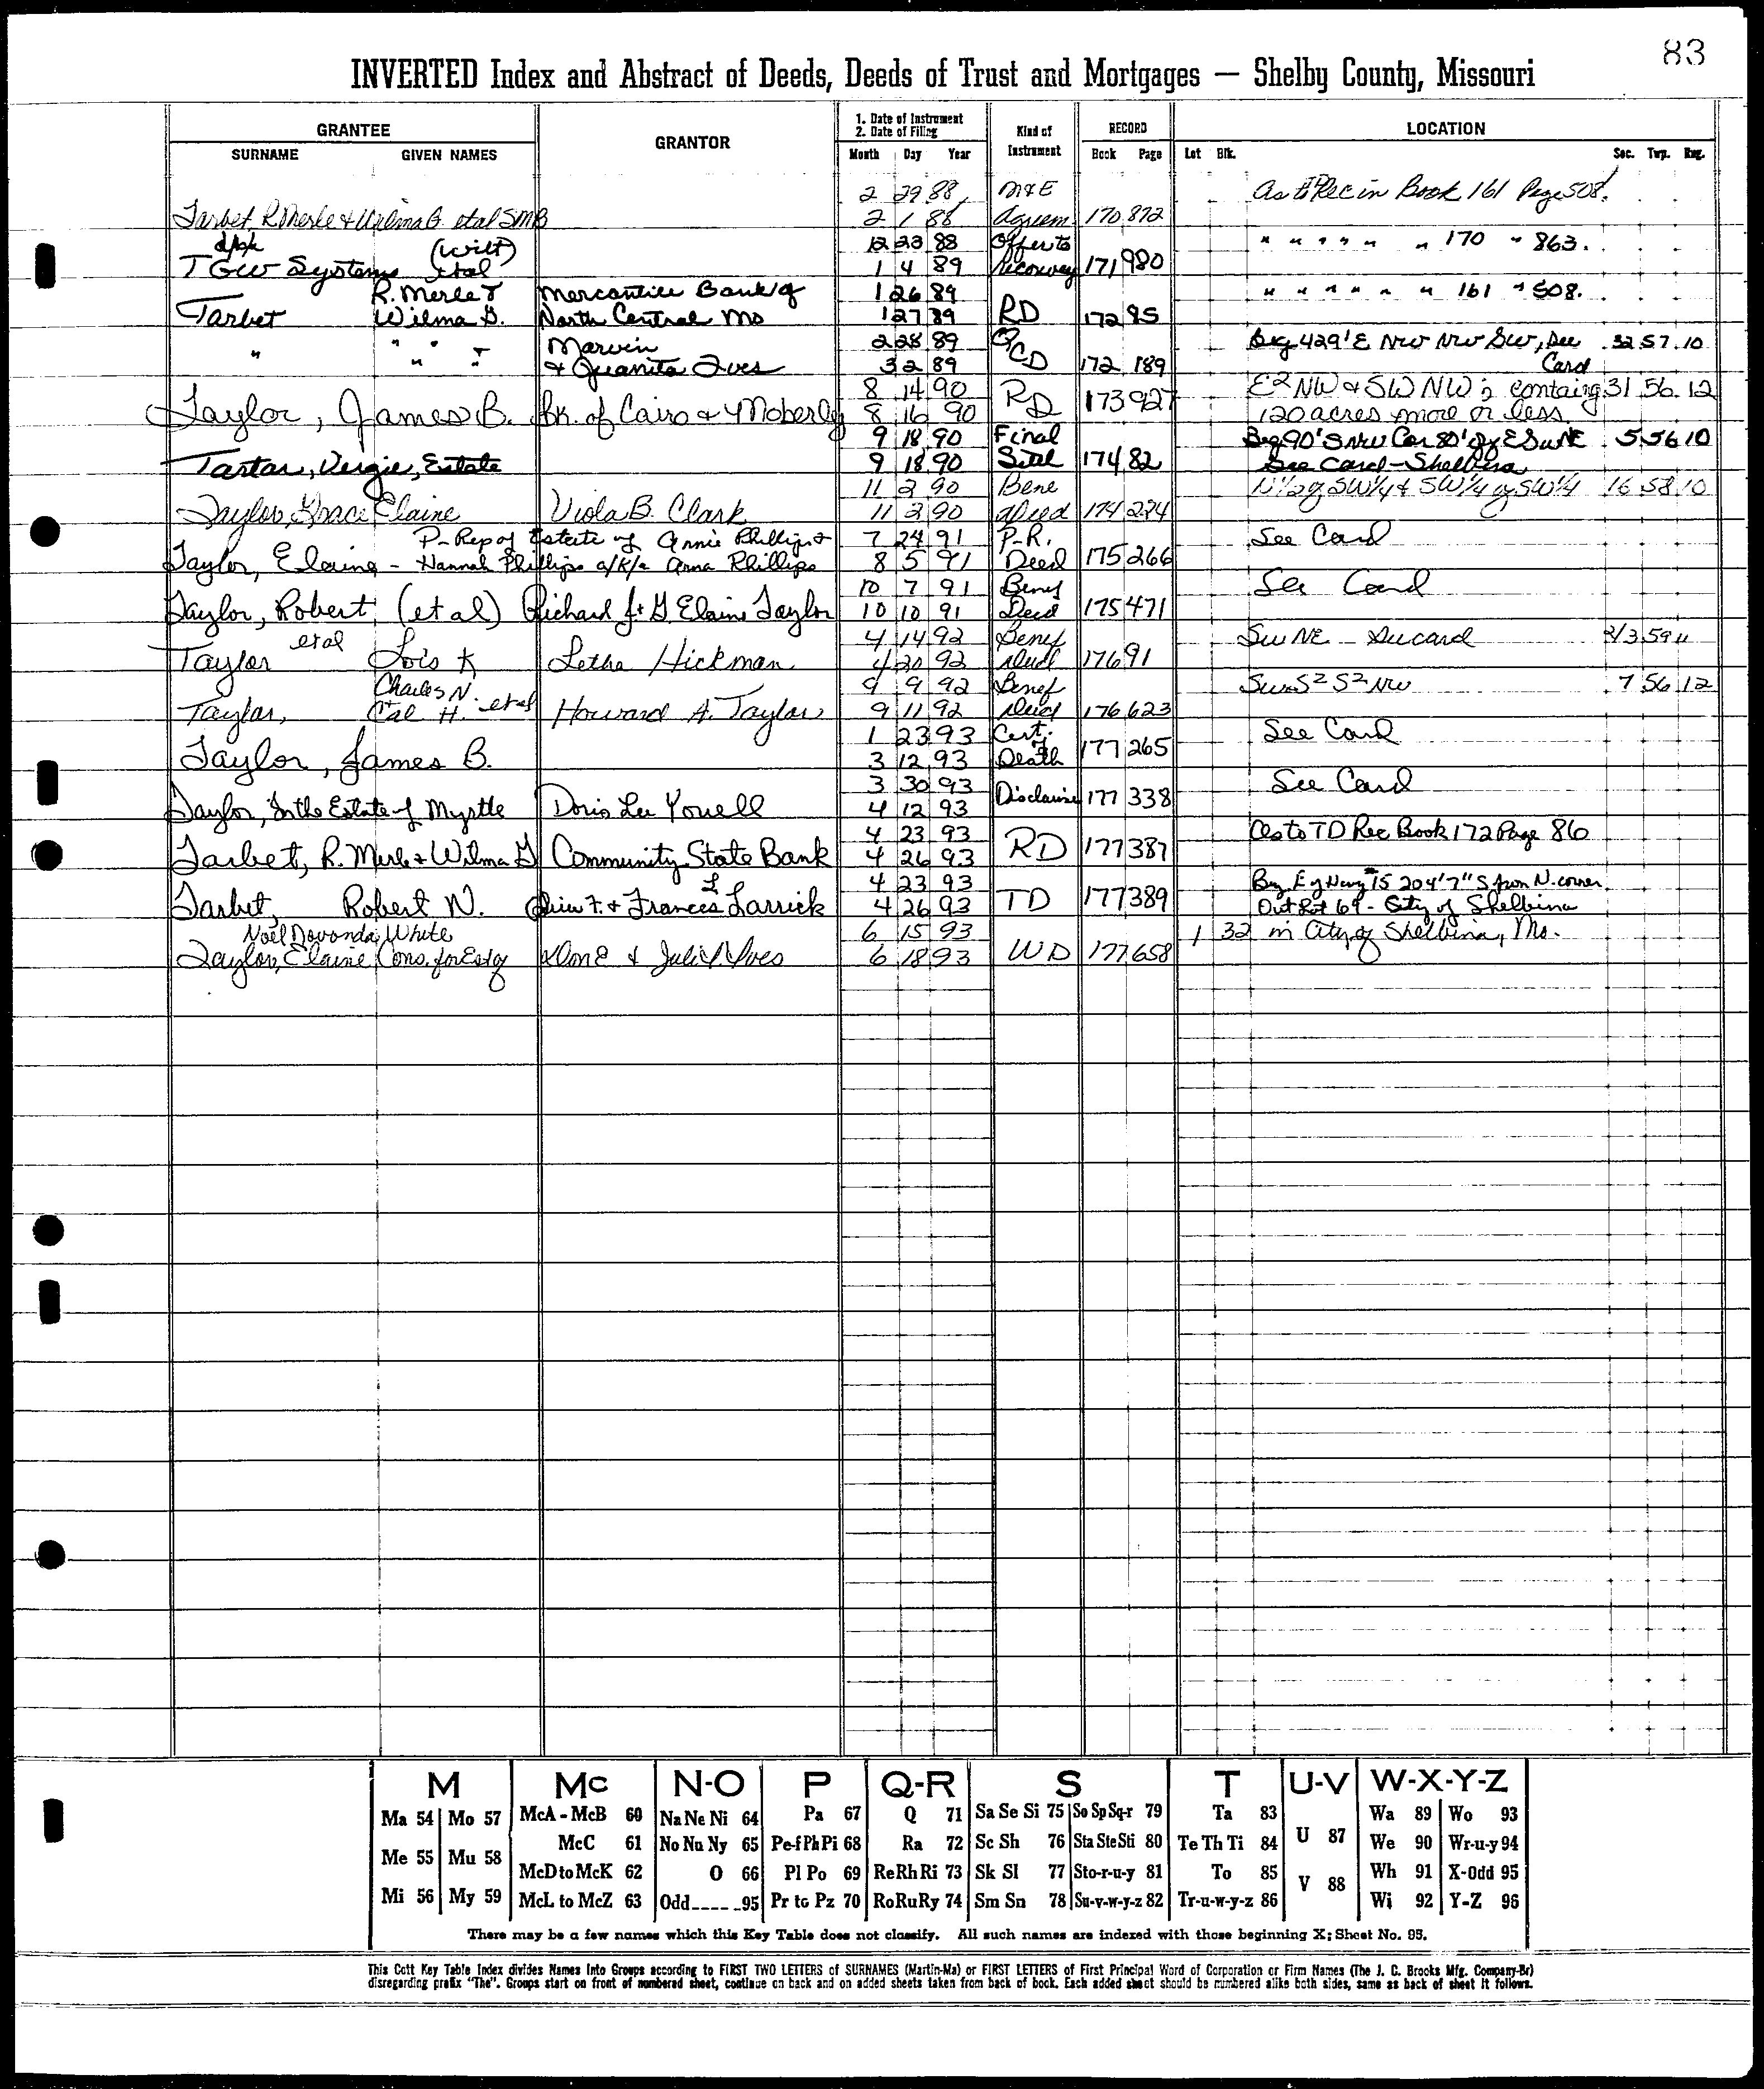 83
INVERTED Index and Abstract of Deeds, Deeds of Trust and Mortgages — Shelby County, Missouri
GRANTEE GRANTOR 1. Date of Instrument Kind of RECORD LOCATION
2. Date of Filing Instrument
SURNAME GIVEN NAMES Month Day Year Book Page Lot Blk. Sec. Twp. Rng.
2 29 88 M&E As to TD Rec in Book 161 Page 508.
Tarbet, R Merle & Wilma G. etal SMB 2 1 88 Agreem 170 872
d/b/a (Wilt) 12 23 88 Offer to " " " " " " 170 " 863.
TGW Systems etal 1 4 89 Reconvey 171 980
R. Merle & Mercantile Bank of 1 26 89 " " " " " " 161 " 508.
Tarbet Wilma G. North Central Mo 1 27 89 RD 172 85
Marvin 2 28 89 QCD Beg 429' E NW NW SW, See 32 57 10
" " " " & Juanita Ives 3 2 89 172 189 Card
8 14 90 RD E2 NW & SW NW; containg 31 56 12
Taylor, James B. Bk. of Cairo & Moberly 8 16 90 173 927 120 acres more or less
9 18 90 Final Beg 90' S NW Cor 80' of E SW NE 5 56 10
Tartar, Vergie, Estate 9 18 90 Sttl 174 82 See Card - Shelbina
11 2 90 Bene N 1/2 of SW 1/4 & SW 1/4 of SW 1/4 16 58 10
Taylor, Grace Elaine Viola B. Clark 11 2 90 Deed 174 224
P-Rep of Estate of Annie Phillips & 7 24 91 P.R. See Card
Taylor, Elaine - Hannah Phillips a/k/a Anna Phillips 8 5 91 Deed 175 266
10 7 91 Benef See Card
Taylor, Robert (et al) Richard J. & G. Elaine Taylor 10 10 91 Deed 175 471
etal 4 14 92 Benef SW NE - See card 2/3 59 11
Taylor Lois K Letha Hickman 4 20 92 Deed 176 91
Charles N. 9 9 92 Benef SW S2 S2 NW 7 56 12
Taylor, & Cal H. etal Howard A. Taylor 9 11 92 Deed 176 623
1 23 93 Cert. of See Card
Taylor, James B. 3 12 93 Death 177 265
3 30 93 See Card
Taylor, In the Estate of Myrtle Doris Lee Youell 4 12 93 Disclaimer 177 338
4 23 93 As to TD Rec Book 172 Page 86
Tarbet, R. Merle & Wilma G Community State Bank 4 26 93 RD 177 387
4 23 93 Beg E of Hwy #15 204'7" S from N. corner
Tarbet, Robert N. F. & Frances L Larrick 4 26 93 TD 177 389 Out Lot 69 - City of Shelbina
Noel Davonda White 6 15 93 1 32 in City of Shelbina, Mo.
Taylor, Elaine Cons. for Est of Don E & Juli Y. Ives 6 18 93 WD 177 658
M Mc N-O P Q-R S T U-V W-X-Y-Z
Ma 54 Mo 57 McA - McB 60 Na Ne Ni 64 Pa 67 Q 71 Sa Se Si 75 So Sp Sq-r 79 Ta 83 U 87 Wa 89 Wo 93
McC 61 No Nu Ny 65 Pe-f Ph Pi 68 Ra 72 Sc Sh 76 Sta Ste Sti 80 Te Th Ti 84 We 90 Wr-u-y 94
Me 55 Mu 58 McD to McK 62 O 66 Pl Po 69 Re Rh Ri 73 Sk Sl 77 Sto-r-u-y 81 To 85 V 88 Wh 91 X-Odd 95
Mi 56 My 59 McL to McZ 63 Odd_____95 Pr to Pz 70 Ro Ru Ry 74 Sm Sn 78 Su-v-w-y-z 82 Tr-u-w-y-z 86 Wi 92 Y-Z 96
There may be a few names which this Key Table does not classify. All such names are indexed with those beginning X; Sheet No. 95.
This Cott Key Table Index divides Names Into Groups according to FIRST TWO LETTERS of SURNAMES (Martin-Ma) or FIRST LETTERS of First Principal Word of Corporation or Firm Names (The J. C. Brooks Mfg. Company-Br)
disregarding prefix "The". Groups start on front of numbered sheet, continue on back and on added sheets taken from back of book. Each added sheet should be numbered alike both sides, same as back of sheet it follows.